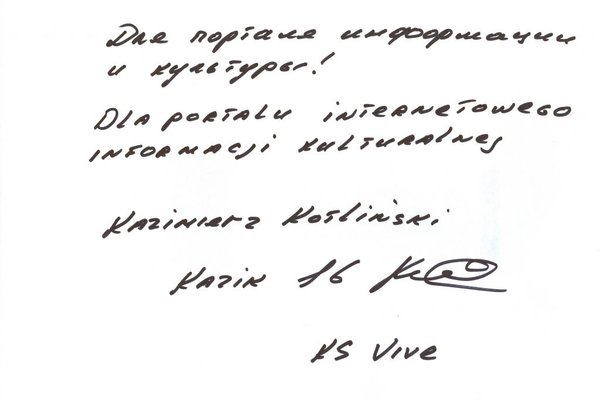 Для портала информации
и культуры!
Dla portalu internetowego
informacji kulturalnej
Kazimierz Kotliński
Kazik 16
KS Vive